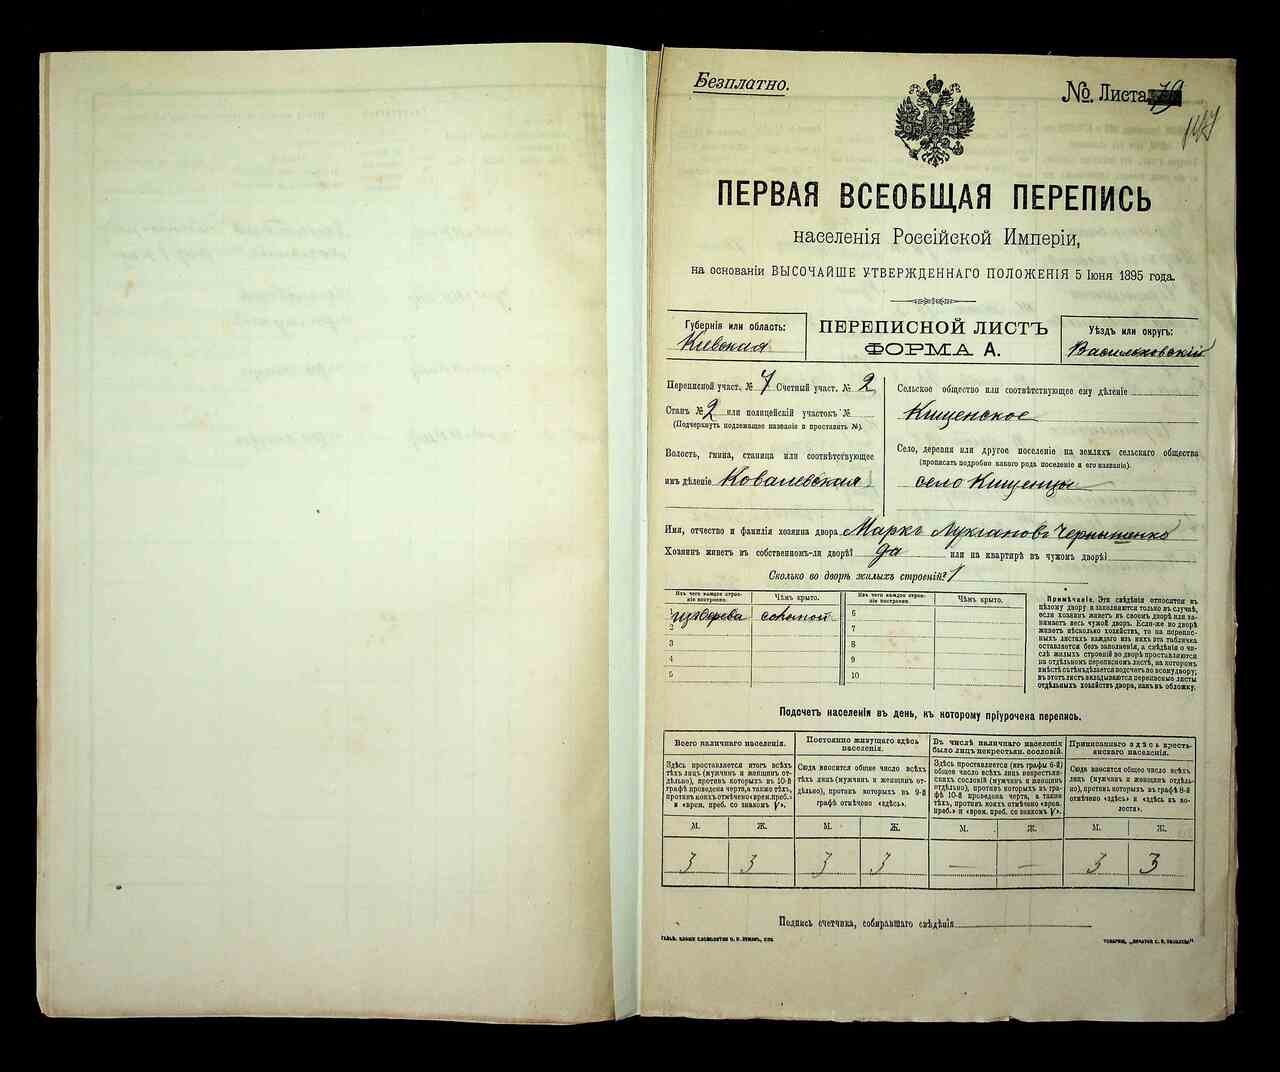 Безплатно.
№ Листа 79
147
ПЕРВАЯ ВСЕОБЩАЯ ПЕРЕПИСЬ
населенія Россійской Имперіи,
на основаніи ВЫСОЧАЙШЕ УТВЕРЖДЕННАГО ПОЛОЖЕНІЯ 5 Іюня 1895 года.
Губернія или область:
Кіевская
ПЕРЕПИСНОЙ ЛИСТЪ
ФОРМА А.
Уѣздъ или округъ:
Васильковскій
Переписной участ. № 7 Счетный участ. № 2
Станъ № 2 или полицейскій участокъ №
(Подчеркнуть подлежащее названіе и проставить №).
Волость, гмина, станица или соотвѣтствующее
имъ дѣленіе Ковалевская
Сельское общество или соотвѣтствующее ему дѣленіе
Кищенское
Село, деревня или другое поселеніе на земляхъ сельскаго общества
(прописать подробно какого рода поселеніе и его названіе).
село Кищенцы
Имя, отчество и фамилія хозяина двора Маркъ Лукіановъ Чернышенко
Хозяинъ живетъ въ собственномъ-ли дворѣ? да или на квартирѣ въ чужомъ дворѣ?
Сколько во дворѣ жилыхъ строеній? 1
Изъ чего каждое строеніе построено.
Чѣмъ крыто.
Изъ чего каждое строеніе построено.
Чѣмъ крыто.
1 изъ дерева соломой
2
3
4
5
6
7
8
9
10
Примѣчаніе. Эти свѣдѣнія относятся къ
цѣлому двору и заполняются только въ случаѣ,
если хозяинъ живетъ въ своемъ дворѣ или занимаетъ
весь чужой дворъ. Если-же во дворѣ
живетъ нѣсколько хозяйствъ, то на переписныхъ
листахъ каждаго изъ нихъ эта табличка
оставляется безъ заполненія, а свѣдѣнія о числѣ
жилыхъ строеній во дворѣ проставляются
на отдѣльномъ переписномъ листѣ, на которомъ
вмѣстѣ съ тѣмъ дѣлается подсчетъ по всему двору;
въ этотъ листъ вкладываются переписные листы
отдѣльныхъ хозяйствъ двора, какъ въ обложку.
Подсчетъ населенія въ день, къ которому пріурочена перепись.
Всего наличнаго населенія.
Здѣсь проставляется итогъ всѣхъ
тѣхъ лицъ (мужчинъ и женщинъ отдѣльно),
противъ которыхъ въ 10-й
графѣ проведена черта, а также тѣхъ,
противъ коихъ отмѣчено «врем. преб.»
и «врем. преб. со знакомъ V».
Постоянно живущаго здѣсь
населенія.
Сюда вносится общее число всѣхъ
тѣхъ лицъ (мужчинъ и женщинъ отдѣльно),
противъ которыхъ въ 9-й
графѣ отмѣчено «здѣсь».
Въ числѣ наличнаго населенія
было лицъ некрестьян. сословій.
Здѣсь проставляется (изъ графы 6-й)
общее число всѣхъ лицъ некрестьянскихъ
сословій (мужчинъ и женщинъ
отдѣльно), противъ которыхъ въ графѣ
10-й проведена черта, а также
тѣхъ, противъ коихъ отмѣчено «врем.
преб.» и «врем. преб. со знакомъ V».
Приписаннаго здѣсь крестьянскаго
населенія.
Сюда вносится общее число всѣхъ
лицъ (мужчинъ и женщинъ отдѣльно),
противъ которыхъ въ графѣ 8-й
отмѣчено «здѣсь» и «здѣсь въ волости».
М. Ж. М. Ж. М. Ж. М. Ж.
3 3 3 3 — — 3 3
Подпись счетчика, собиравшаго свѣдѣнія